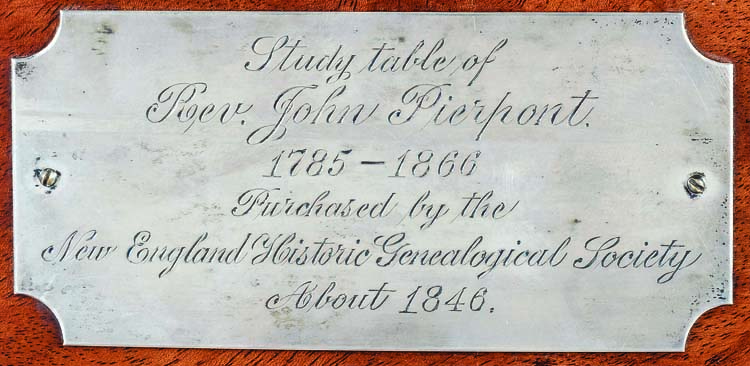 Study table of
Rev. John Pierpont.
1785 – 1866
Purchased by the
New England Historic Genealogical Society
About 1846.